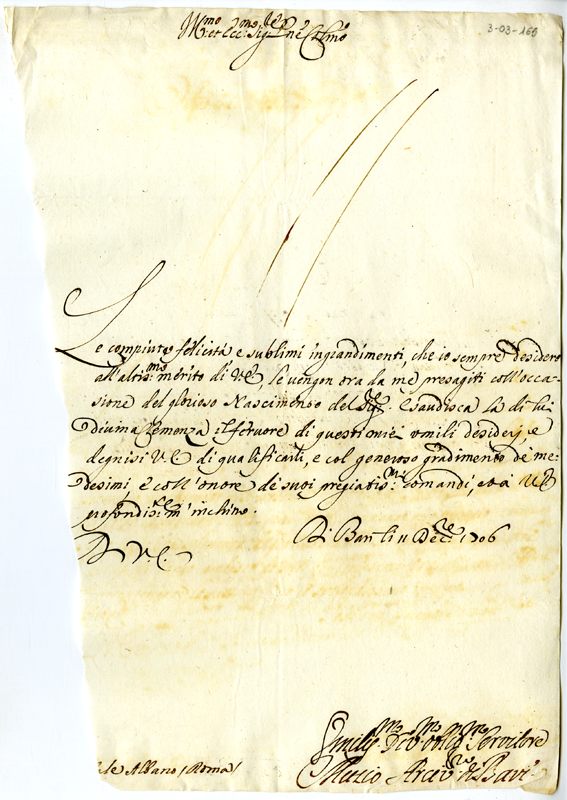 3-03-166
Em.mo et Ecc.mo Sig.r Prne Col.mo
Le compiute felicità e sublimi ingrandimenti, che io sempre desidero
all'altis.mo merito di V.E. le vengon ora da me presagiti coll'occa-
sione del glorioso Nascimento del Sig.re. Esaudisca la di lui
divina Clemenza il fervore di questi miei umili desiderj, e
degnisi V.E. di qualificarli, e col generoso gradimento de me-
desimi, e coll'onore de suoi pregiatis.mi comandi, et a V.E.
profondis.te m'inchino.
Di V.E.
Bari li 11 Dec.re 1706
Umilis.mo Dev.mo obblig.mo Servitore
Muzio Arciv.o di Bari
le Albano (Roma)